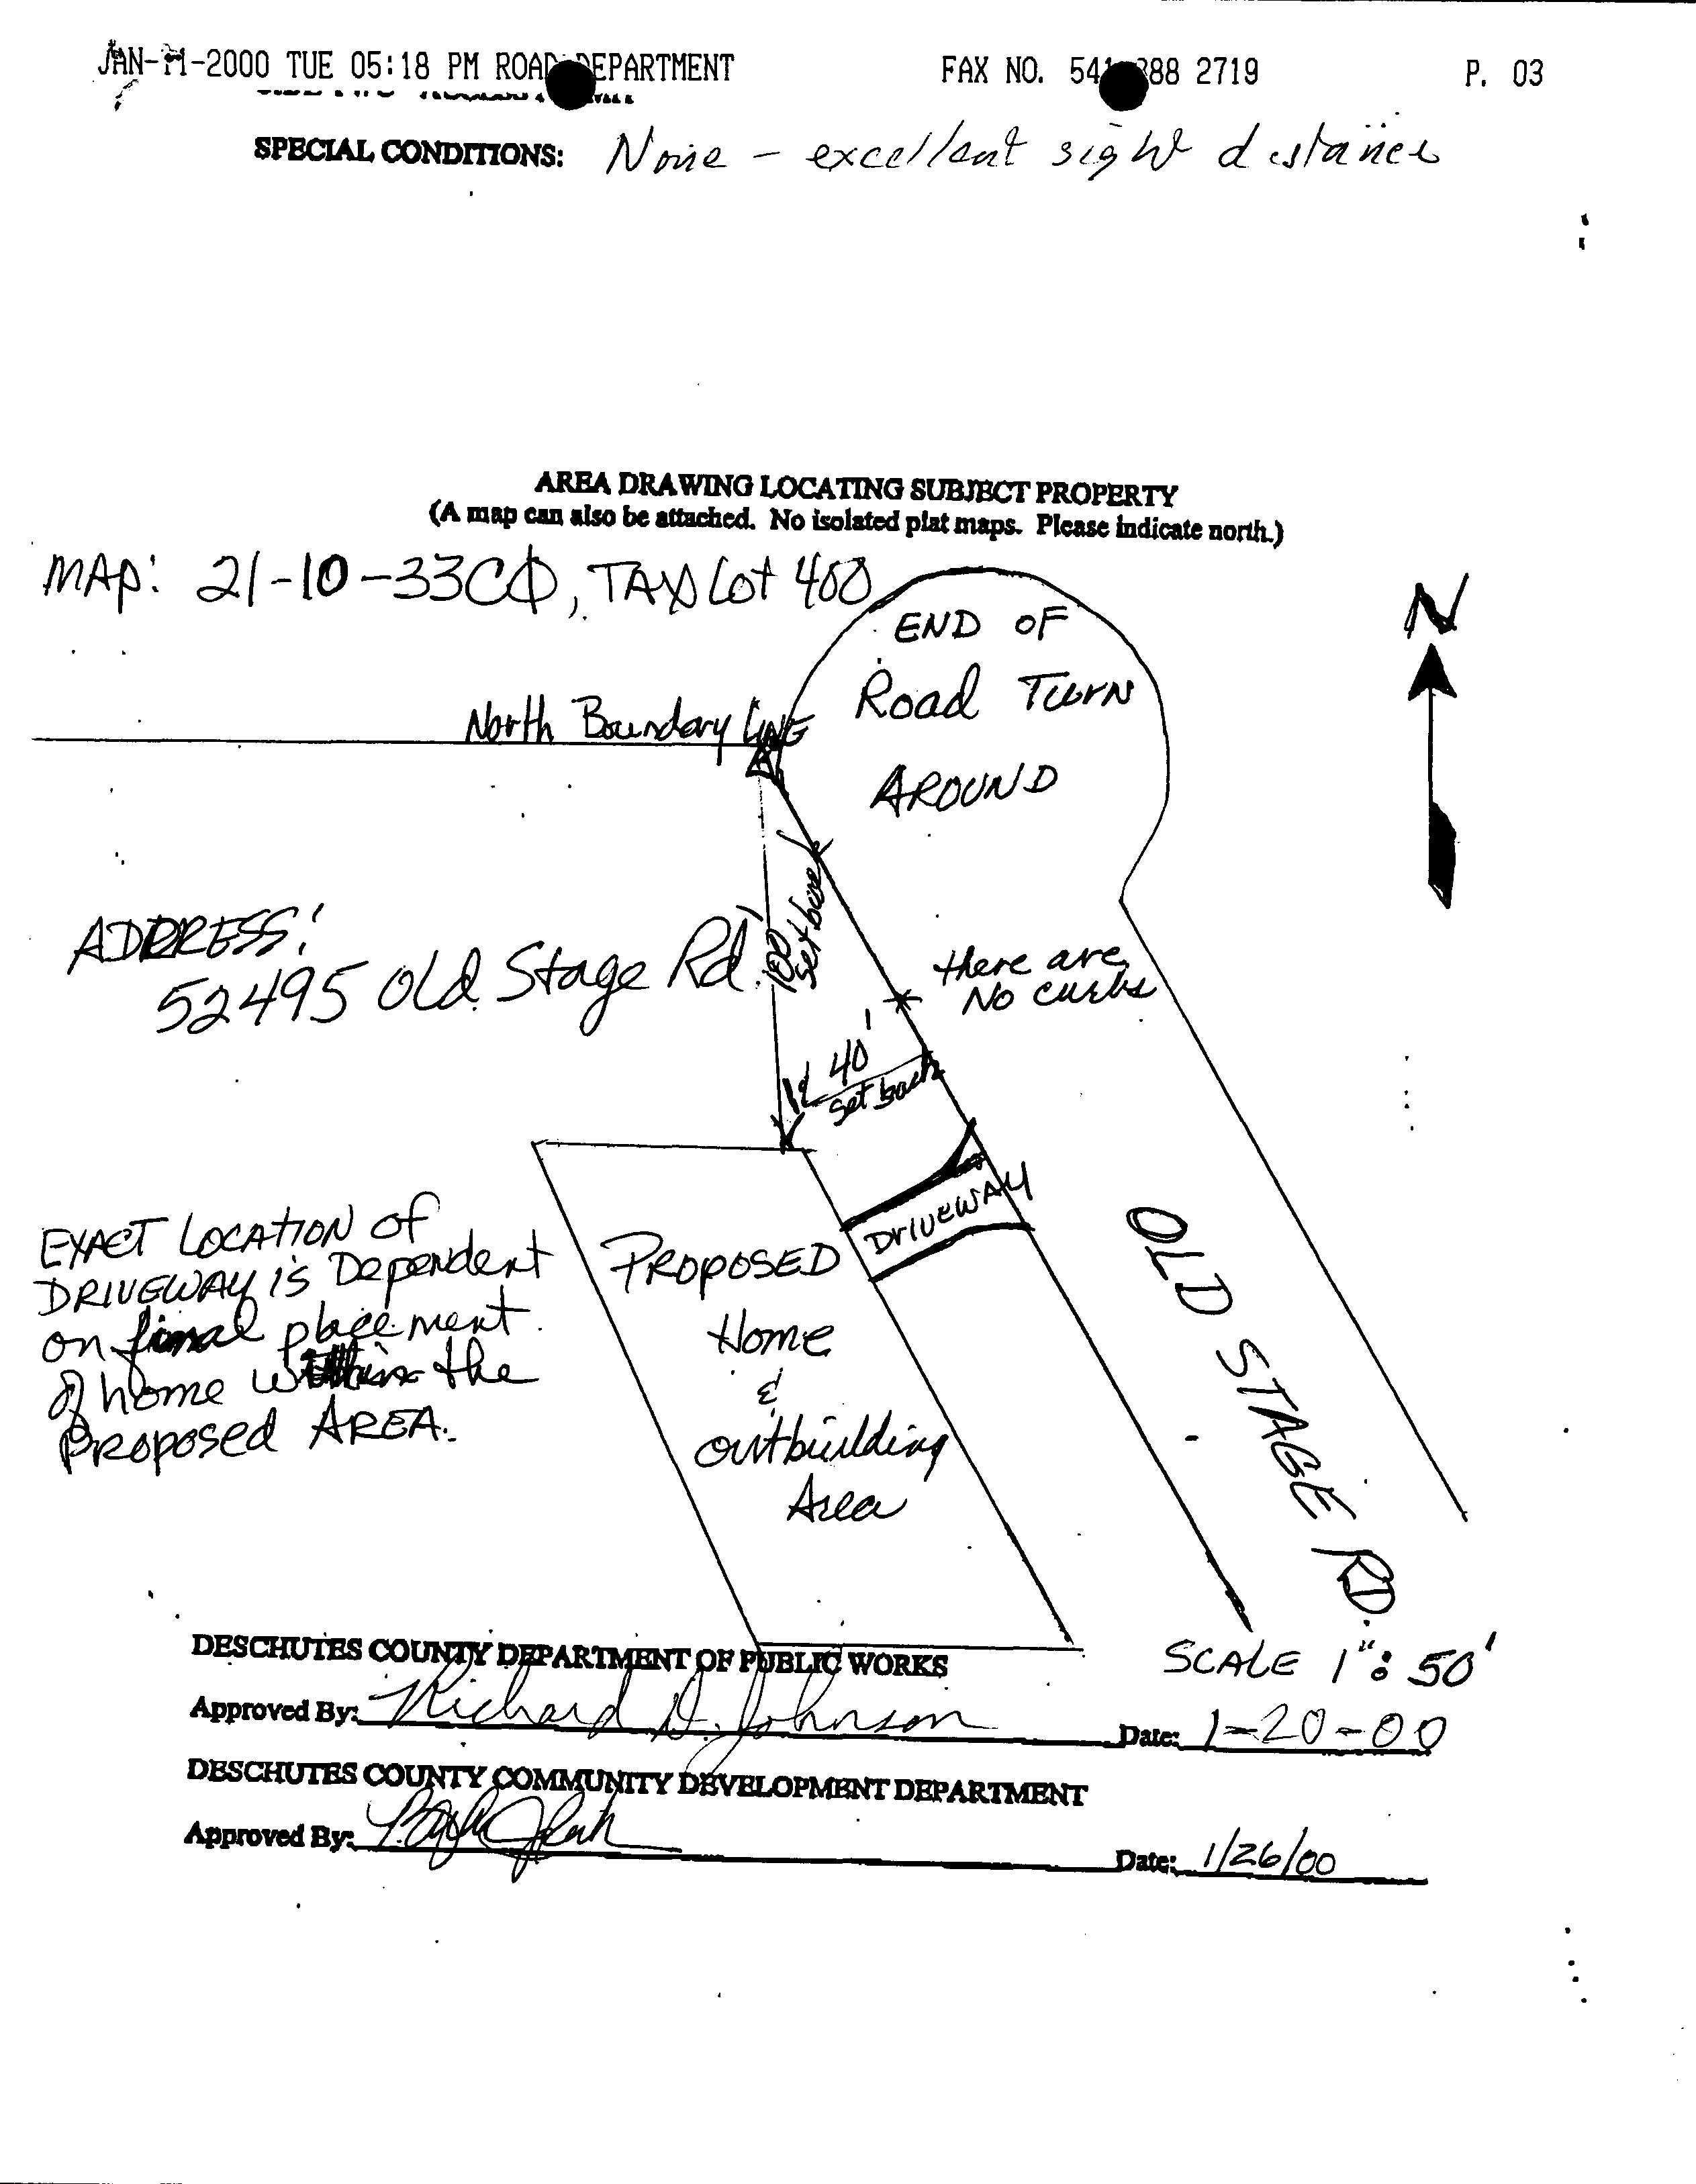 JAN-11-2000 TUE 05:18 PM ROAD DEPARTMENT FAX NO. 541 388 2719 P. 03
SPECIAL CONDITIONS: None - excellent sight distance
AREA DRAWING LOCATING SUBJECT PROPERTY
(A map can also be attached. No isolated plat maps. Please indicate north.)
MAP: 21-10-33C0, TAX Lot 400
N
END OF
Road Turn
AROUND
North Boundary LINE
ADDRESS:
52495 Old Stage Rd.
100'
set back
there are
No curbs
40'
set back
DRIVEWAY
EXACT LOCATION of
DRIVEWAY is Dependent
on final placement
of home within the
PROPOSED AREA.
PROPOSED
Home
&
outbuilding
Area
OLD STAGE RD.
SCALE 1": 50'
DESCHUTES COUNTY DEPARTMENT OF PUBLIC WORKS
Approved By: Richard D. Johnson Date: 1-20-00
DESCHUTES COUNTY COMMUNITY DEVELOPMENT DEPARTMENT
Approved By: Date: 1/26/00